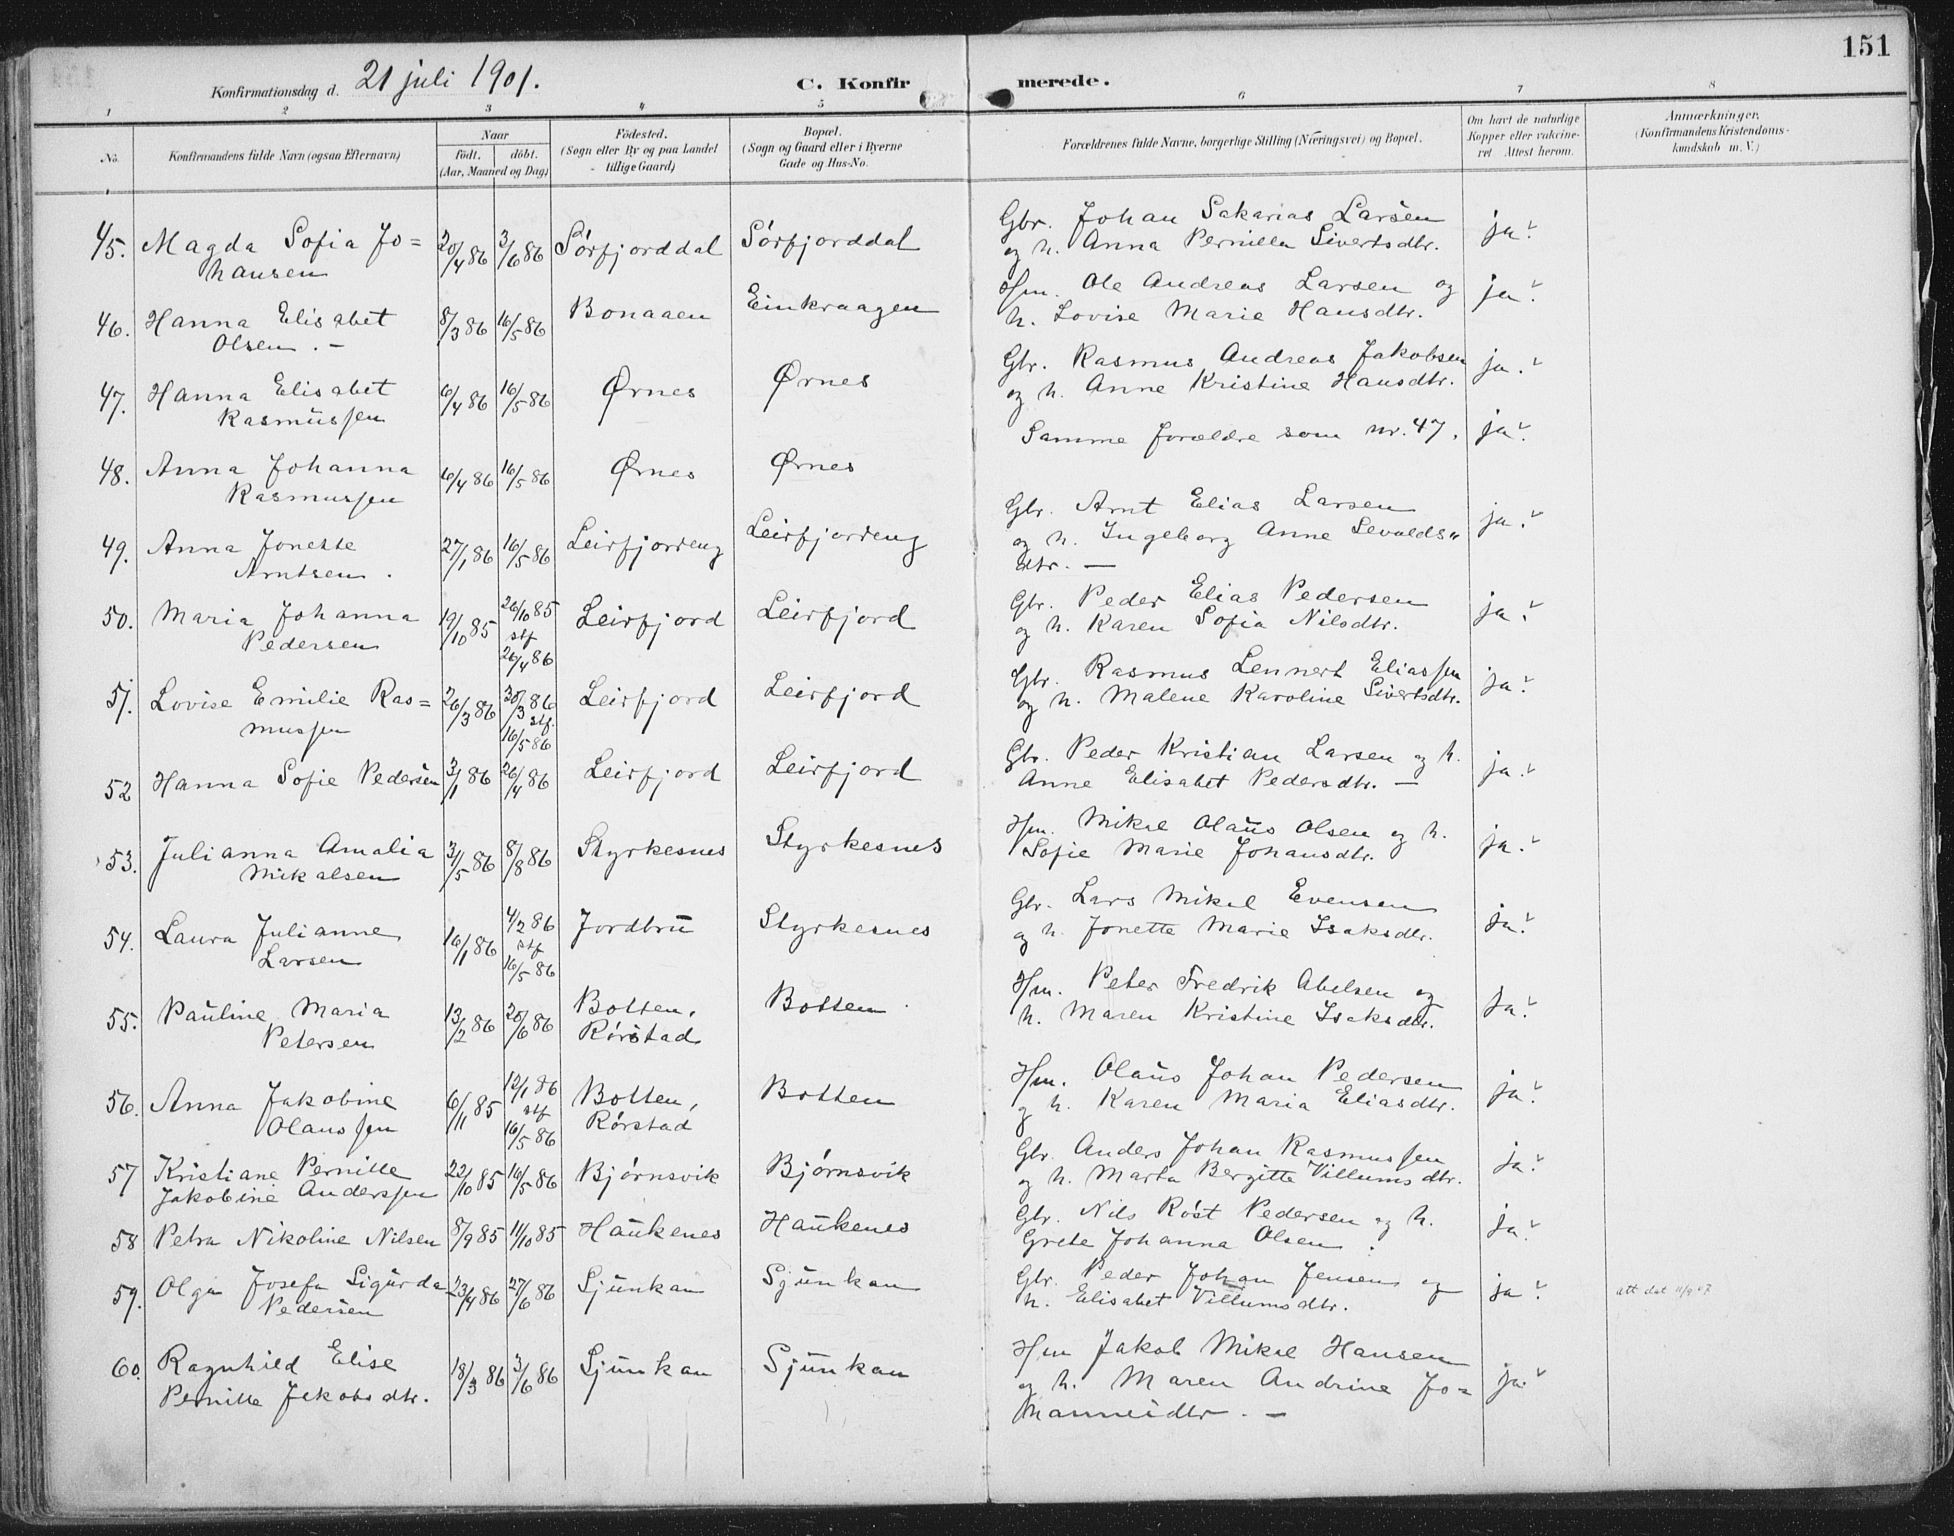 151
Konfirmationsdag d. 21 juli 1901. C. Konfirmerede.
1 2 3 4 5 6 7 8
No. Konfirmandens fulde Navn (ogsaa Efternavn) Naar födt. döbt. (Aar, Maaned og Dag) Födested. (Sogn eller By og paa Landet tillige Gaard) Bopæl. (Sogn og Gaard eller i Byerne Gade og Hus-No. Forældrenes fulde Navne, borgerlige Stilling (Næringsvei) og Bopæl. Om havt de naturlige Kopper eller vakcineret Attest herom. Anmærkninger, (Konfirmandens Kristendomskundskab m. V.)
45. Magda Sofia Jo= 20/4 86 3/6 86 Sørfjorddal Sørfjorddal Gbr. Johan Sakarias Larsen ja.
hansen og h. Anna Pernilla Sivertsdtr.
46. Hanna Elisabet 8/3 86 16/5 86 Bonaaen Einkraagen Hm. Ole Andreas Larsen og ja.
Olsen. – h. Lovise Marie Hansdtr.
47. Hanna Elisabet 6/4 86 16/5 86 Ørnes Ørnes Gbr. Rasmus Andreas Jakobsen ja.
Rasmussen og h. Anne Kristine Hansdtr.
48. Anna Johanna 6/4 86 16/5 86 Ørnes Ørnes Samme forældre som nr. 47. ja.
Rasmussen
49. Anna Jonette 27/1 86 16/5 86 Leirfjordeng Leirfjordeng Gbr. Arnt Elias Larsen ja.
Arntsen. og h. Ingeborg Anne Sevalds"
dtr. —
50. Maria Johanna 19/10 85 26/10 85 stf 26/4 86 Leirfjord Leirfjord Gbr. Peder Elias Pedersen ja.
Pedersen og h. Karen Sofia Nilsdtr.
51. Lovise Emilie Ras= 26/3 86 30/3 86 stf. 16/5 86 Leirfjord Leirfjord Gbr. Rasmus Lennert Eliassen ja.
mussen og h. Malene Karoline Sivertsdtr.
52 Hanna Sofie Pedersen 3/1 86 26/4 86 Leirfjord Leirfjord Gbr. Peder Kristian Larsen og h. ja.
Anne Elisabet Pedersdtr. —
53. Julianna Amalia 3/5 86 8/8 86 Styrkesnes Styrkesnes Hm. Mikal Olaus Olsen og h. ja.
Mikalsen Sofie Marie Johansdtr.
54. Laura Julianne 16/1 86 4/2 86 stf 16/5 86 Jordbru Styrkesnes Gbr. Lars Mikal Evensen ja.
Larsen og h. Jonette Marie Isaksdtr.
55. Pauline Maria 13/2 86 20/6 86 Botten, Rørstad Botten Hm. Peter Fredrik Abelsen og ja.
Petersen h. Maren Kristine Isaksdtr.
56. Anna Jakobine 6/11 85 12/1 86 stf 16/5 86 Botten, Rørstad Botten Hm. Olaus Johan Pedersen ja.
Olaussen og h. Karen Maria Eliasdtr.
57 Kristiane Pernille 22/10 85 16/5 86 Bjørnsvik Bjørnsvik Gbr. Anders Johan Rasmussen ja.
Jakobine Anderssen og h. Marta Bergitte Villumsdtr.
58 Petra Nikoline Nilsen 8/9 85 11/10 85 Haukenes Haukenes Gbr. Nils Røst Pedersen og h. ja.
Grete Johanna Olsen.
59. Olga Josefa Sigurda 23/4 86 27/6 86 Sjunkan Sjunkan Gbr. Peder Johan Jensen og ja. att dat 11/9 07
Pedersen h. Elisabet Villumsdtr.
60. Ragnhild Elise 18/3 86 3/6 86 Sjunkan Sjunkan Hm Jakob Mikal Hansen ja.
Pernille Jakobsdtr. og h. Maren Andrine Jo=
hannesdtr. —